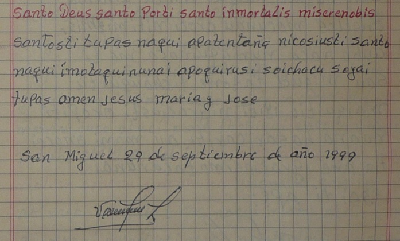 Santo Deus santo Porti santo inmortalis miserenobis
santosti tupas naqui apatentañe nicosiusti santo
naqui imotaquinunai apoquirusi soichacu sozai
tupas amen Jesus maria y Jose
San Miguel 29 de septiembre de año 1999